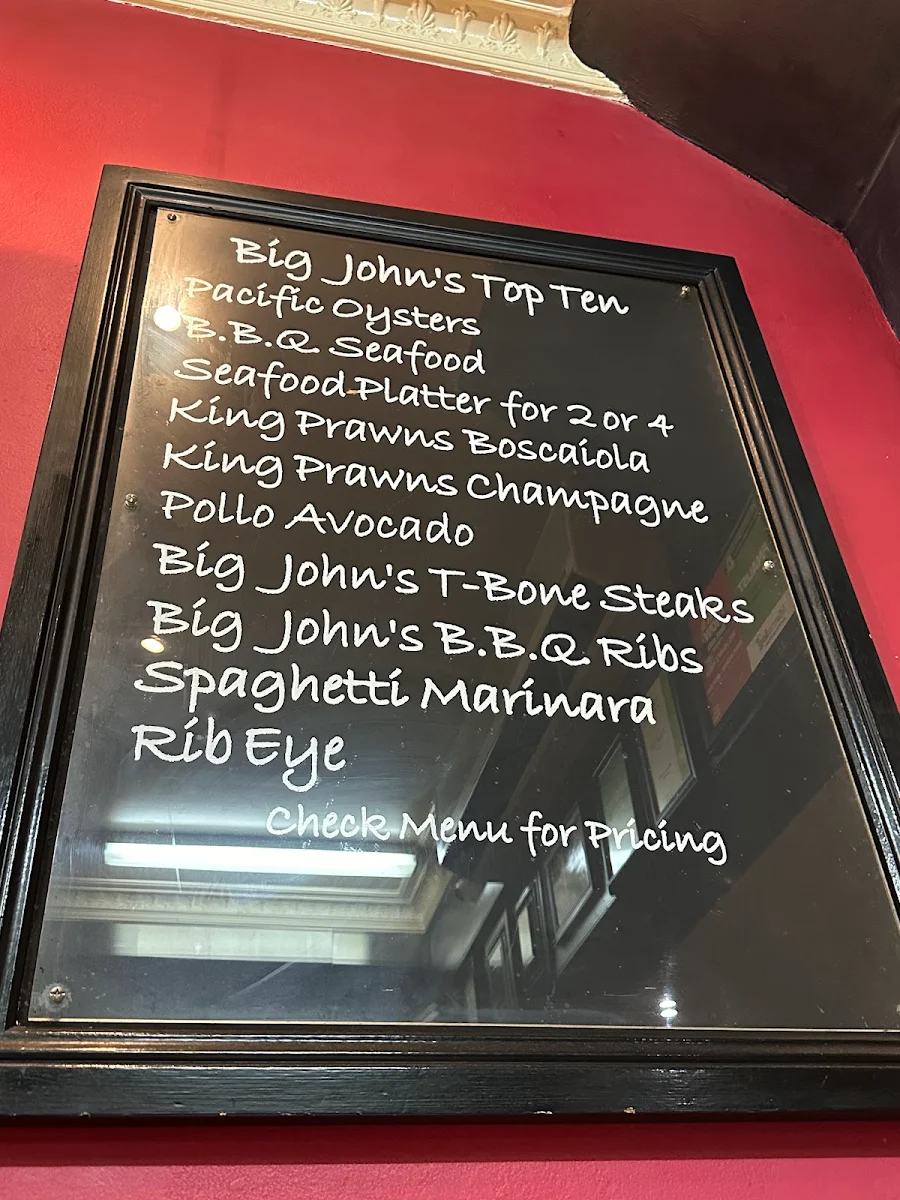 Big John's Top Ten
Pacific Oysters
B.B.Q Seafood
Seafood Platter for 2 or 4
King Prawns Boscaiola
King Prawns Champagne
Pollo Avocado
Big John's T-Bone Steaks
Big John's B.B.Q Ribs
Spaghetti Marinara
Rib Eye
Check Menu for Pricing